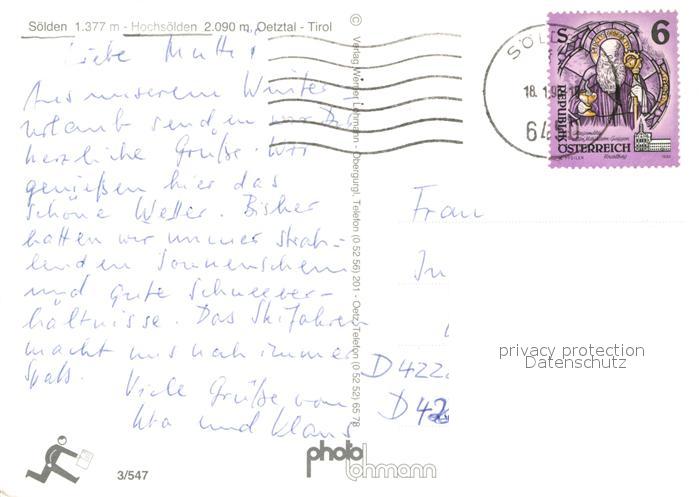 Sölden 1.377 m - Hochsölden 2.090 m, Oetztal - Tirol
Liebe Mutti!
Aus unserem Winter-
urlaub senden wir Dir
herzliche Grüße. Wir
genießen hier das
schöne Wetter. Bisher
hatten wir immer strah-
lenden Sonnenschein
und gute Schneever-
hältnisse. Das Skifahren
macht uns noch immer
Spaß.
Viele Grüße von
Uta und Klaus
3/547
© Verlag Werner Lohmann - Obergurgl, Telefon (0 52 56) 201 - Oetz, Telefon (0 52 52) 65 78
photo
lohmann
SÖL
18. 1. 9
645
S 6
REPUBLIK
ÖSTERREICH
Frau
In
D 422
D 42
privacy protection
Datenschutz